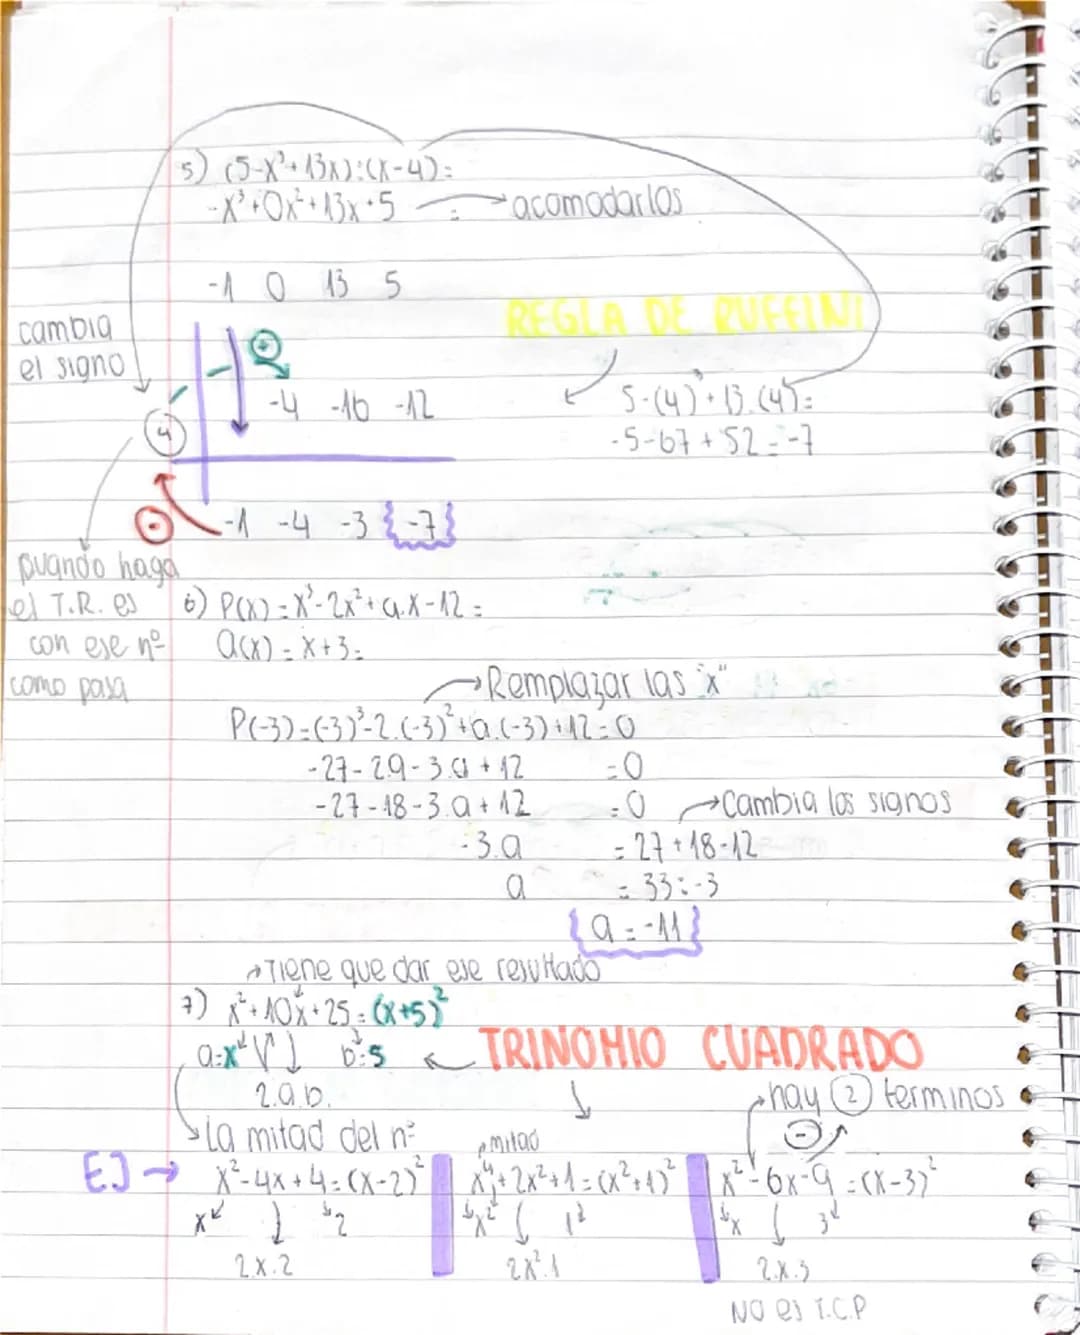 5) (5-x³+13x):(x-4)=
-x³+0x²+13x+5 = → acomodarlos
-1 0 13 5
REGLA DE RUFFINI
cambia
el signo
+
-4 -16 -12
4
5-(4)³+13.(4)=
-5-67+52=-7
- -1 -4 -3 {-7}
cuando haga
el T.R. es
con ese nº
como pasa
6) P(x)=x³-2x²+a.x-12=
Q(x)=x+3=
→ Remplazar las "x"
P(-3)=(-3)³-2.(-3)²+a.(-3)+12=0
-27-2.9-3.a+12 =0
-27-18-3.a+12 =0 → Cambia los signos
-3.a = 27+18-12
a = 33:-3
{a=-11}
→ Tiene que dar ese resultado
7) x²+10x+25=(x+5)²
a=x b=5 ← TRINOMIO CUADRADO
2.a.b.
hay 2 terminos
-
La mitad del nº
mitad
EJ → x²-4x+4=(x-2)² x⁴+2x²+1=(x²+1)² x²-6x-9=(x-3)²
x 2 x² 1² x 3
2.x.2 2x².1 2.x.3
NO es T.C.P